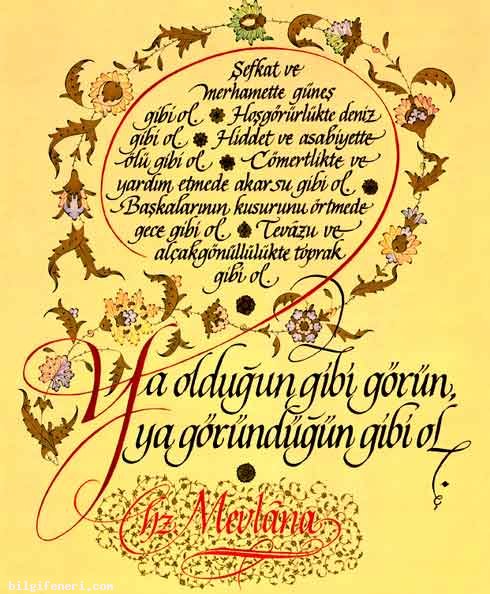 Şefkat ve
merhamette güneş
gibi ol Hoşgörürlükte deniz
gibi ol Hiddet ve asabiyette
ölü gibi ol Cömertlikte ve
yardım etmede akarsu gibi ol
Başkalarının kusurunu örtmede
gece gibi ol Tevâzu ve
alçakgönüllülükte toprak
gibi ol
Ya olduğun gibi görün,
ya göründüğün gibi ol.
Hz Mevlâna
bilgifeneri.com